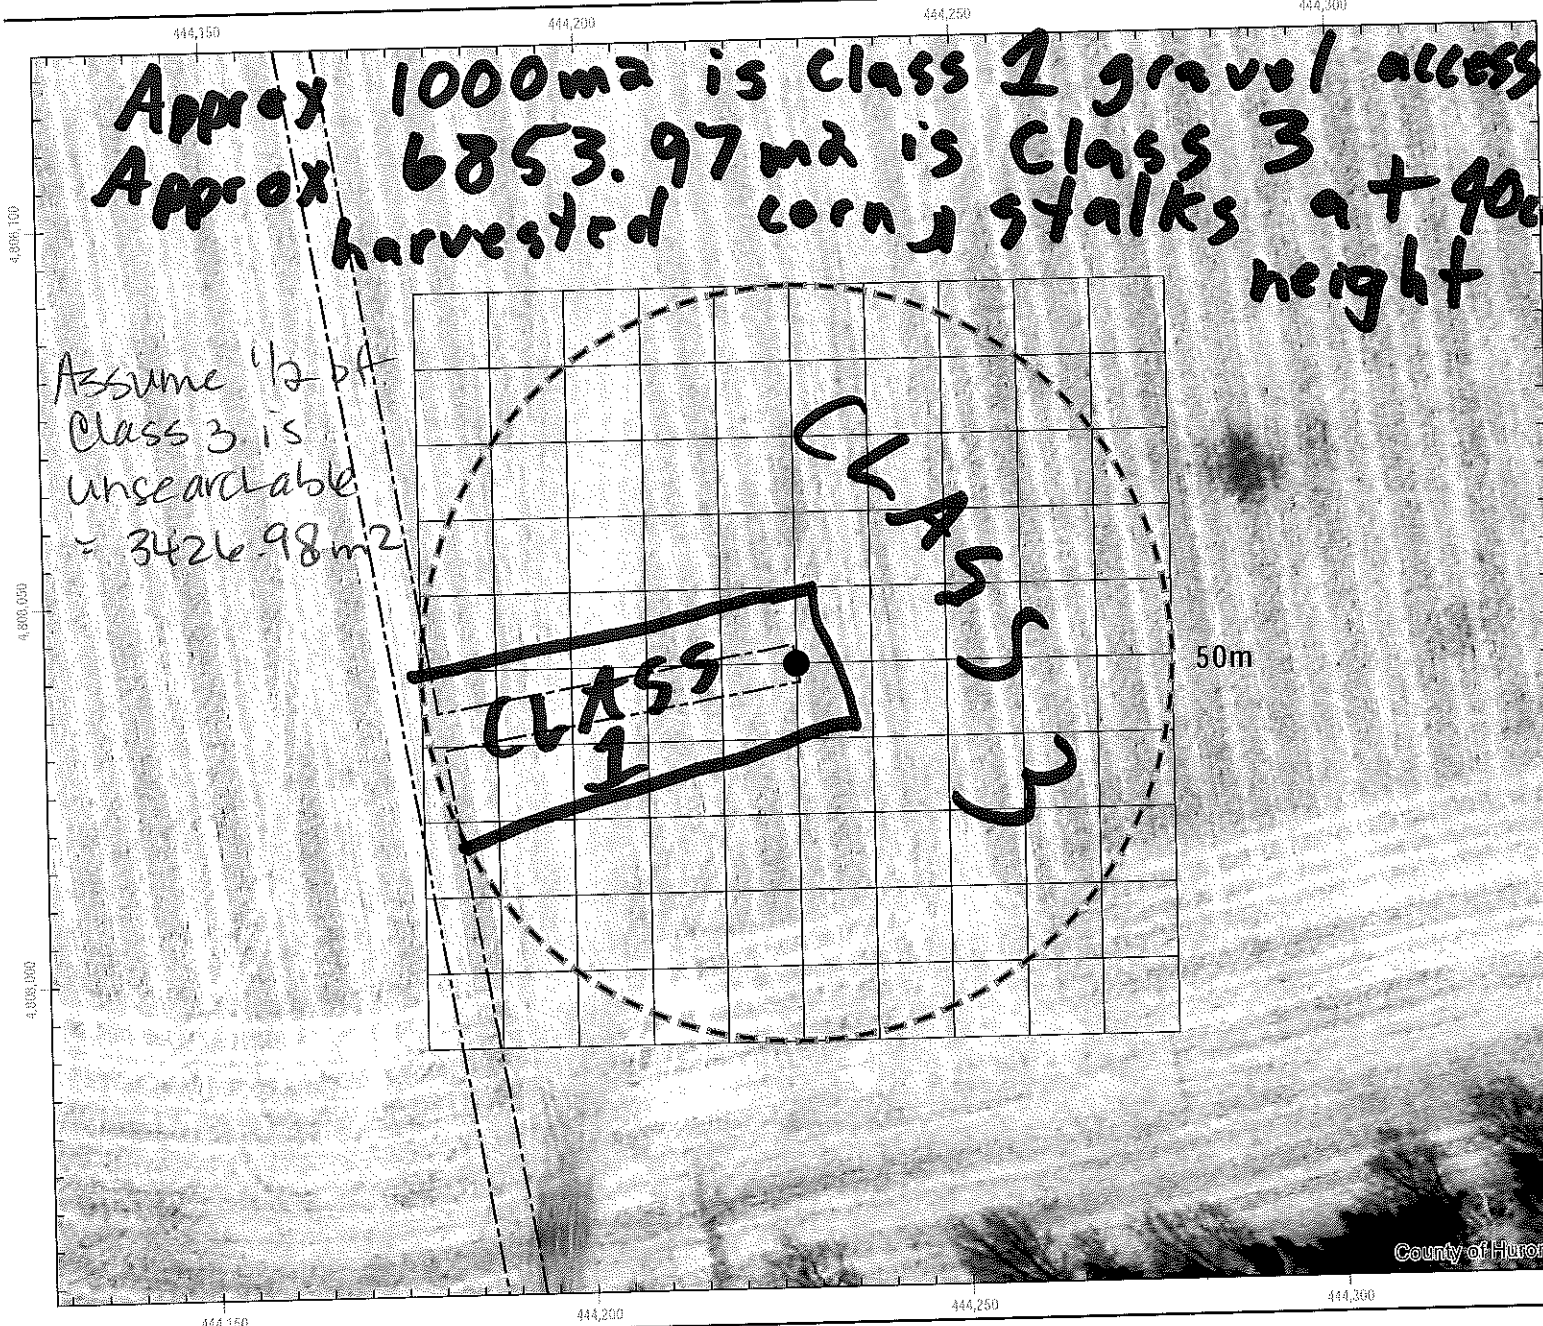 444,150 444,200 444,250 444,300
Approx 1000m2 is Class 1 gravel access
Approx 6853.97m2 is Class 3
harvested corn, stalks at 40c
height
4,808,100
Assume 1/2 of
Class 3 is
unsearchable
= 3426.98m2
CLASS
3
4,808,050
CLASS
1
50m
4,808,000
County of Huron
444,150 444,200 444,250 444,300